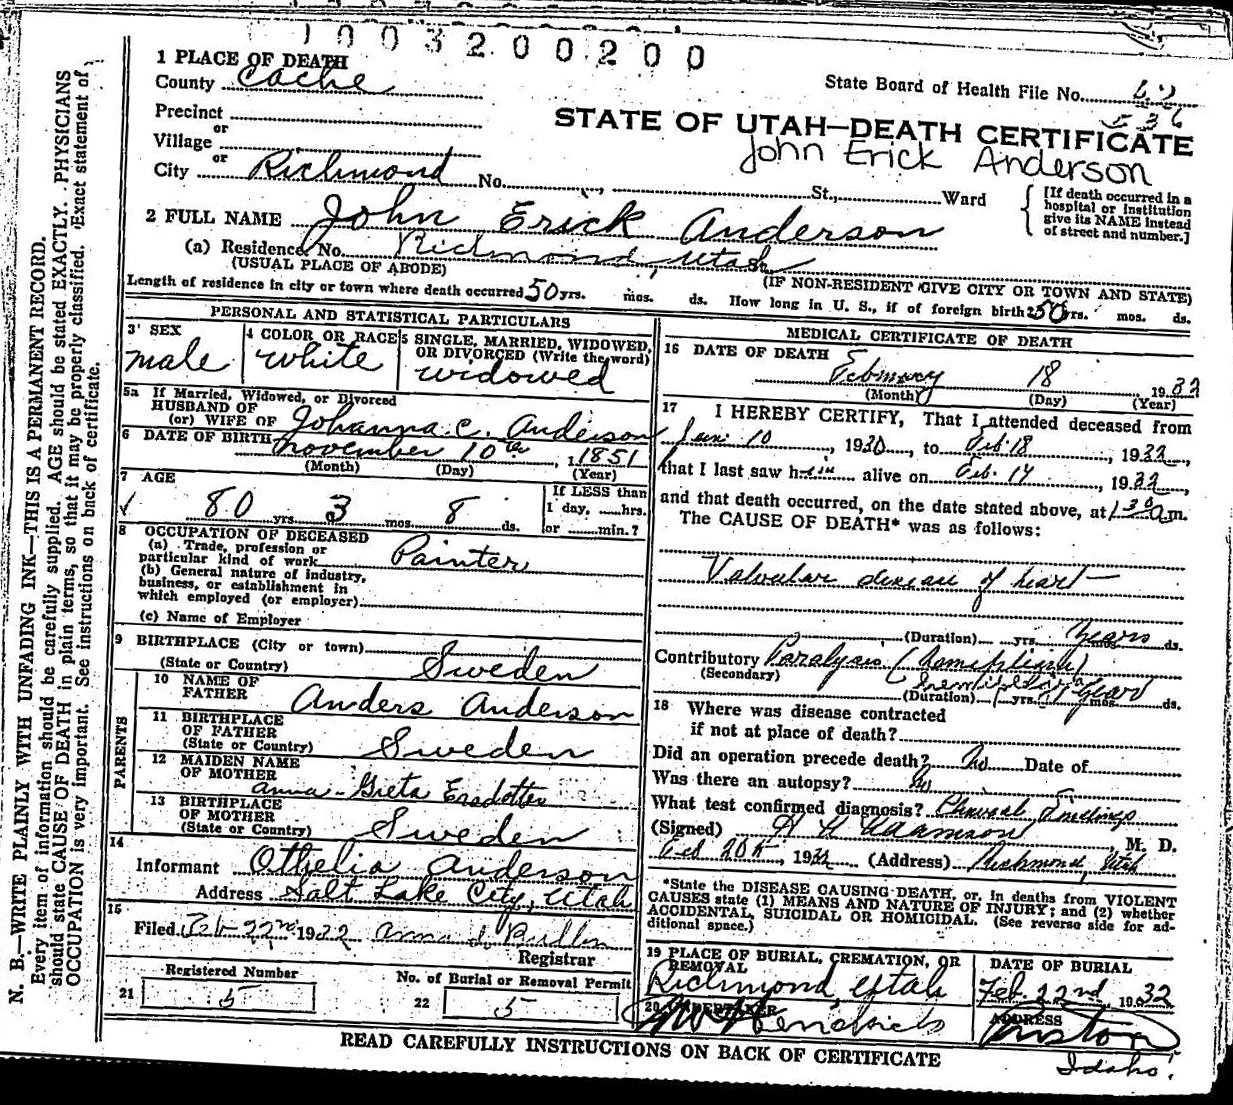 1003200200
1 PLACE OF DEATH
County Cache
State Board of Health File No.
Precinct
or
STATE OF UTAH—DEATH CERTIFICATE
Village
John Erick Anderson
or
City Richmond No. St., Ward
[If death occurred in a
hospital or institution
give its NAME instead
of street and number.]
2 FULL NAME John Erick Anderson
(a) Residence, No. Richmond, Utah
(USUAL PLACE OF ABODE)
(IF NON-RESIDENT GIVE CITY OR TOWN AND STATE)
Length of residence in city or town where death occurred 50 yrs. mos. ds. How long in U. S., if of foreign birth? 50 yrs. mos. ds.
PERSONAL AND STATISTICAL PARTICULARS
3 SEX
male
4 COLOR OR RACE
white
5 SINGLE, MARRIED, WIDOWED,
OR DIVORCED (Write the word)
widowed
5a If Married, Widowed, or Divorced
HUSBAND OF
(or) WIFE OF Johanna C. Anderson
6 DATE OF BIRTH November 10th, 1851
(Month) (Day) (Year)
7 AGE
80 yrs. 3 mos. 8 ds.
If LESS than
1 day, hrs.
or min.?
8 OCCUPATION OF DECEASED
(a) Trade, profession or
particular kind of work Painter
(b) General nature of industry,
business, or establishment in
which employed (or employer)
(c) Name of Employer
9 BIRTHPLACE (City or town)
(State or Country) Sweden
PARENTS
10 NAME OF
FATHER Anders Anderson
11 BIRTHPLACE
OF FATHER
(State or Country) Sweden
12 MAIDEN NAME
OF MOTHER
Anna Greta Ersdotter
13 BIRTHPLACE
OF MOTHER
(State or Country) Sweden
14
Informant Othelia Anderson
Address Salt Lake City, Utah
15
Filed Feb 22nd 1932 Anna
Registrar
Registered Number
21 5
No. of Burial or Removal Permit
22 5
MEDICAL CERTIFICATE OF DEATH
16 DATE OF DEATH
February 18 1932
(Month) (Day) (Year)
17 I HEREBY CERTIFY, That I attended deceased from
10, 1930, to Feb 18, 1932,
that I last saw him alive on Feb. 14, 1932,
and that death occurred, on the date stated above, at 1 30 a.m.
The CAUSE OF DEATH* was as follows:
Valvular disease of heart
(Duration) yrs. Years ds.
Contributory Paralysis (hemiplegia)
(Secondary)
(Duration) yrs. mos. ds.
18 Where was disease contracted
if not at place of death?
Did an operation precede death? No Date of
Was there an autopsy? No
What test confirmed diagnosis? Physical findings
(Signed) Adamson, M. D.
Feb 20th, 1932 (Address) Richmond, Utah
*State the DISEASE CAUSING DEATH, or, in deaths from VIOLENT
CAUSES state (1) MEANS AND NATURE OF INJURY; and (2) whether
ACCIDENTAL, SUICIDAL OR HOMICIDAL. (See reverse side for ad-
ditional space.)
19 PLACE OF BURIAL, CREMATION, OR
REMOVAL
Richmond, Utah
DATE OF BURIAL
Feb. 22nd, 1932
20 UNDERTAKER
Hendricks
ADDRESS
Preston
Idaho.
READ CAREFULLY INSTRUCTIONS ON BACK OF CERTIFICATE
N. B.—WRITE PLAINLY WITH UNFADING INK—THIS IS A PERMANENT RECORD.
Every item of information should be carefully supplied. AGE should be stated EXACTLY. PHYSICIANS
should state CAUSE OF DEATH in plain terms, so that it may be properly classified. Exact statement of
OCCUPATION is very important. See instructions on back of certificate.